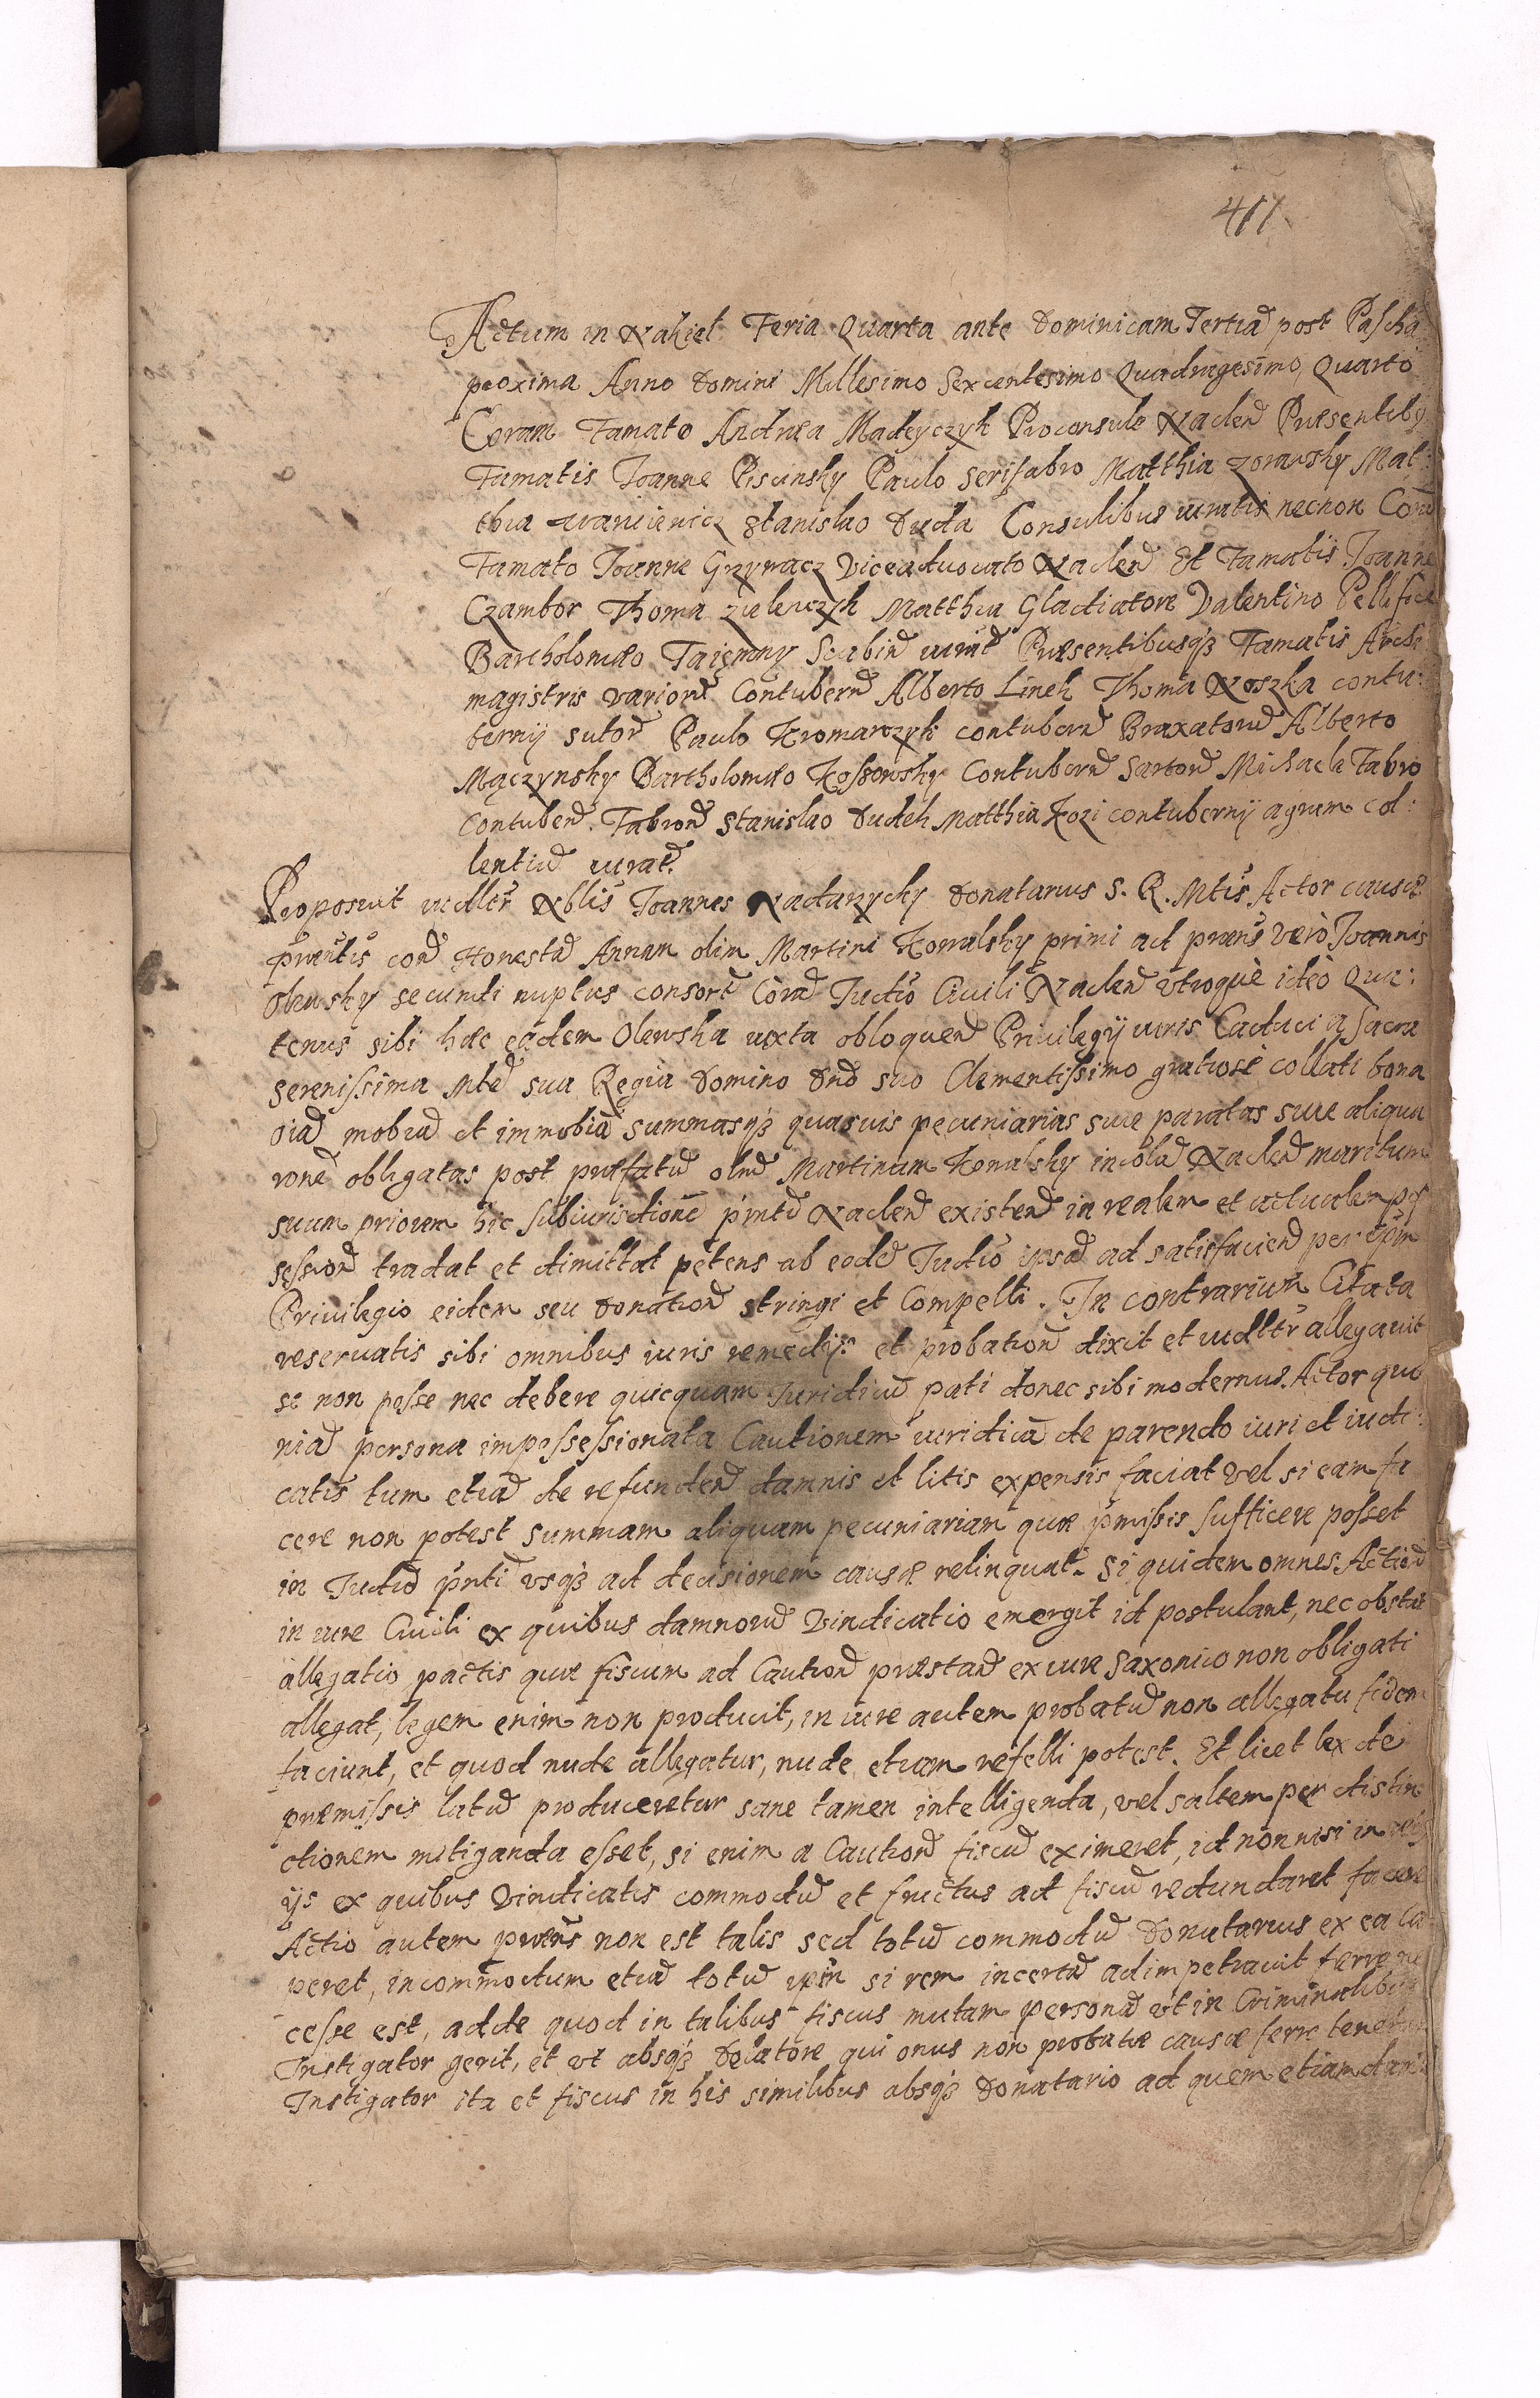 417
Actum in Nakiel Feria Quarta ante Dominicam Tertiã post Pascha
proxima Anno Domini Millesimo Sexcentesimo Quadragesimo Quarto
Coram Famato Andrea Madeyczyk Proconsule Naclen̄ Præsentibȝ
Famatis Joanne Piscinsky Paulo Serifabro Matthia Zorawsky Mat:
thia Stanislao Duda Consulibus iuratis necnon Corã
Famato Joanne Grzymacz Viceadvocato Naclen̄ Et Famatis Joanne
Czambor Thoma Zielenczyk Matthia Gladiatore Valentino Pellifice
Bartholomæo Taięmny Scabin̄ iurat̄ Præsentibusqȝ Famatis Archi
magistris varior̄ Contubern̄ Alberto Linek Thoma Noszka contu:
bernij sutor̄ Paulo Kromarczyk contubern̄ Braxatorū Alberto
Mączynsky Bartholomæo Kossowsky Contubern̄ Sartor̄ Michaele Fabro
Contubern̄. Fabror̄ Stanislao Dudek Matthia Kozi contubernij agrum col:
lentiū iurat̄.
Proposuit Nblis̄ Joannes Nadarzycky Donatarius S. R. Mtis̄ Actor causæ
præntis̄ con̄ Honestā Annam olim Martini Kowalsky primi ad præns̄ verò Joannis
Olewsky secundi nuptus consort̄ Corā Judio̅ Civili Naclen̄ vtroquè ideò Qua:
tenus sibi hæc eadem Olewska iuxta obloquen̄ Privilegÿ iuris Caduci a Sacra
Serenissima Mtē sua Regia Domino Dn̄o suo Clementissimo gratiosè collati bona
oiā mobiā et immobiā summasqȝ quasuis pecuniarias siue paratas siue aliqua
rone̅ obligatas post præfatū olīm Martinum Kowalsky incolā Naclen̄ maritum
suum priorem hic sub iurisdictione̅ Naclen̄ existen̄ in realem et actualem pos
session̄ tradat et dimittat petens ab eode̅ Judio̅ ipsā ad satisfacien̄
Privilegio eidem seu Donation̄ stringi et Compelli. In contrarium Citata
reseruatis sibi omnibus iuris remedÿs et probation̄ dixit et allegauit
se non posse nec debere quicquam Juridicū pati donec sibi modernus Actor quo
niā persona impossessionata Cautionem iuridicā de parendo iuri et iudi:
catis tum etiā de refunden̄ damnis et litis expensis faciat vel si eam fa
cere non potest summam aliquam pecuniariam quæ p̄missis sufficere posset
in Judio̅ pn̄ti vsqȝ ad decisionem causæ relinquat. Si quidem omnes Action̄
in iure Ciuili ex quibus damnorū Vindicatio emergit id postulant, nec obstat
allegatio partis quæ fiscum ad Caution̄ præstan̄ ex iure Saxonico non obligati
allegat, legem enim non producit, in iure autem probatū non allegatu fidem
faciunt, et quod nude allegatur, nude etiam refelli potest. Et licet lex de
præmissis latū produceretur sane tamen intelligenda, vel saltem per distin
ctionem mitiganda esset, si enim a Caution̄ fiscū eximeret, id nonnisi in
ÿs ex quibus Vindicatis commodū et fructus ad fiscū redundaret faceret
Actio autem præns̄ non est talis sed totū commodū Donatarius ex ea Ca
peret, incommodum etiā totū si rem incertā adimpetrauit ferre ne
cesse est, adde quod in talibus fiscus mutam personā vt in Criminalibus
Instigator gerit, et vt absqȝ Delatore qui onus non probatæ causæ ferre tenetur
Instigator ita et fiscus in his similibus absqȝ Donatario ad quem etiam